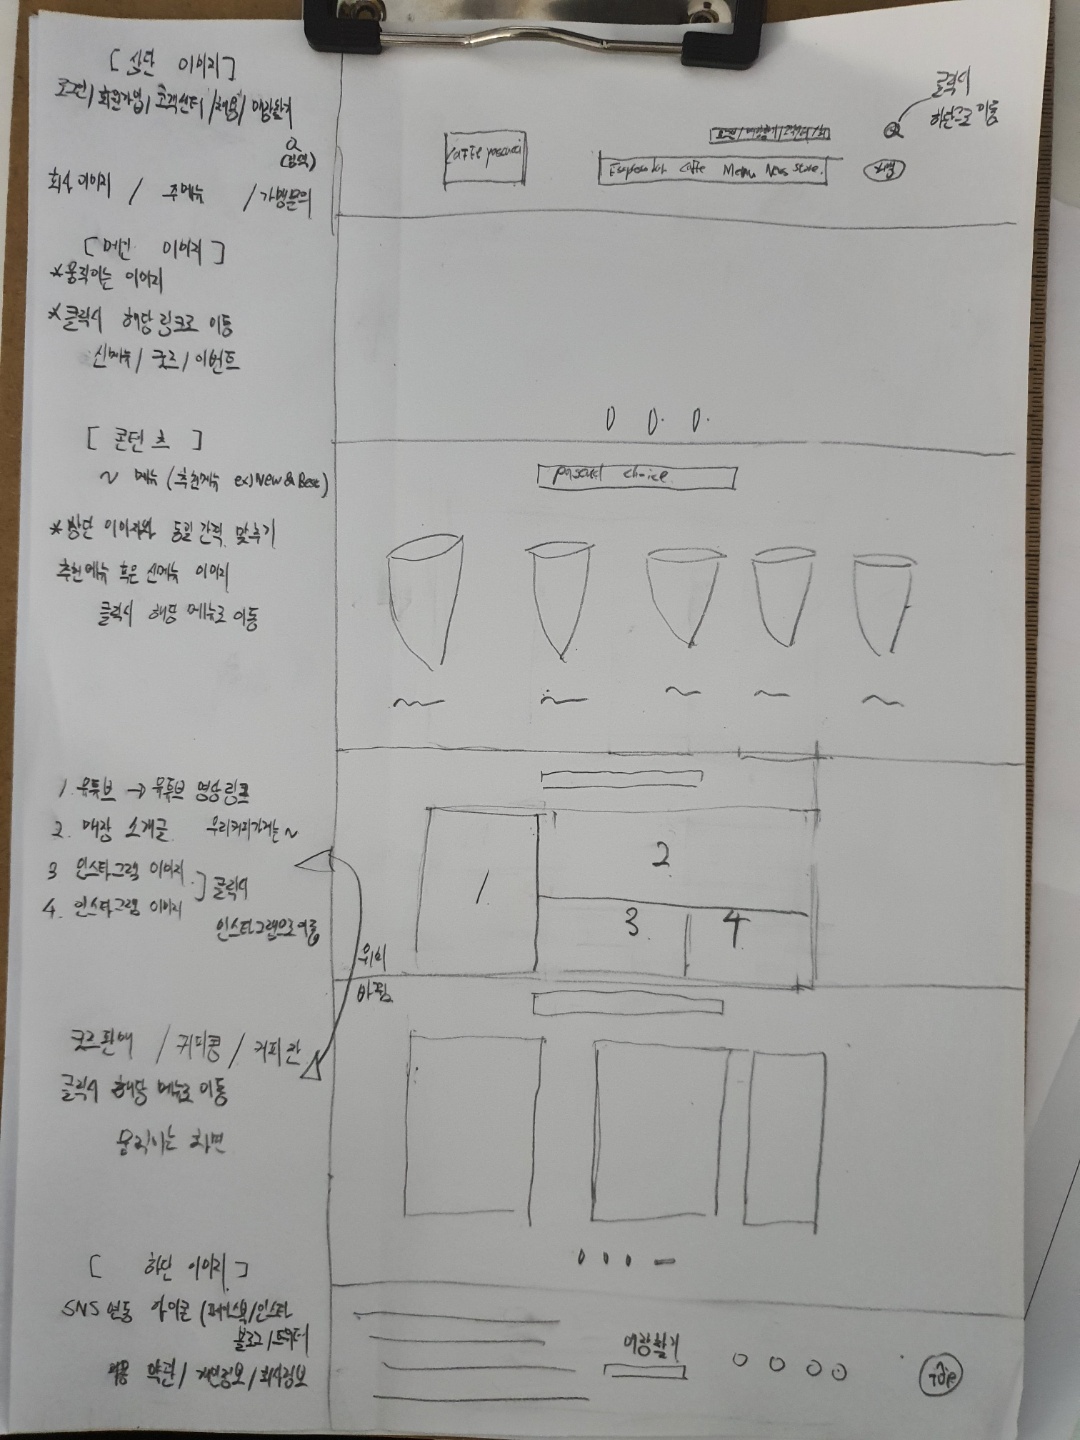 [ 상단 이미지 ]
로그인 / 회원가입 / 고객센터 / 채용 / 매장찾기
(검색)
회사 이미지 / 주메뉴 / 가맹문의
[ 메인 이미지 ]
*움직이는 이미지
*클릭시 해당 링크로 이동
신메뉴 / 굿즈 / 이벤트
[ 콘텐츠 ]
~ 메뉴 (추천메뉴 ex) New & Best)
*상단 이미지와 동일 간격 맞추기
추천메뉴 혹은 신메뉴 이미지
클릭시 해당 메뉴로 이동
1. 유튜브 → 유튜브 영상 링크
2. 매장 소개글 우리커피가게는 ~
3 인스타그램 이미지
4. 인스타그램 이미지
] 클릭시
인스타그램으로 이동
위치
바뀜
굿즈판매 / 커피콩 / 커피잔
클릭시 해당 메뉴로 이동
움직이는 화면
[ 하단 이미지 ]
SNS 연동 아이콘 (페이스북/인스타
블로그/트위터
이용 약관 / 개인정보 / 회사정보
클릭시
하단으로 이동
Caffe pascucci
Espresso bar Caffe Menu News Store.
가맹
pascucci choice
1
2
3
4
매장찾기